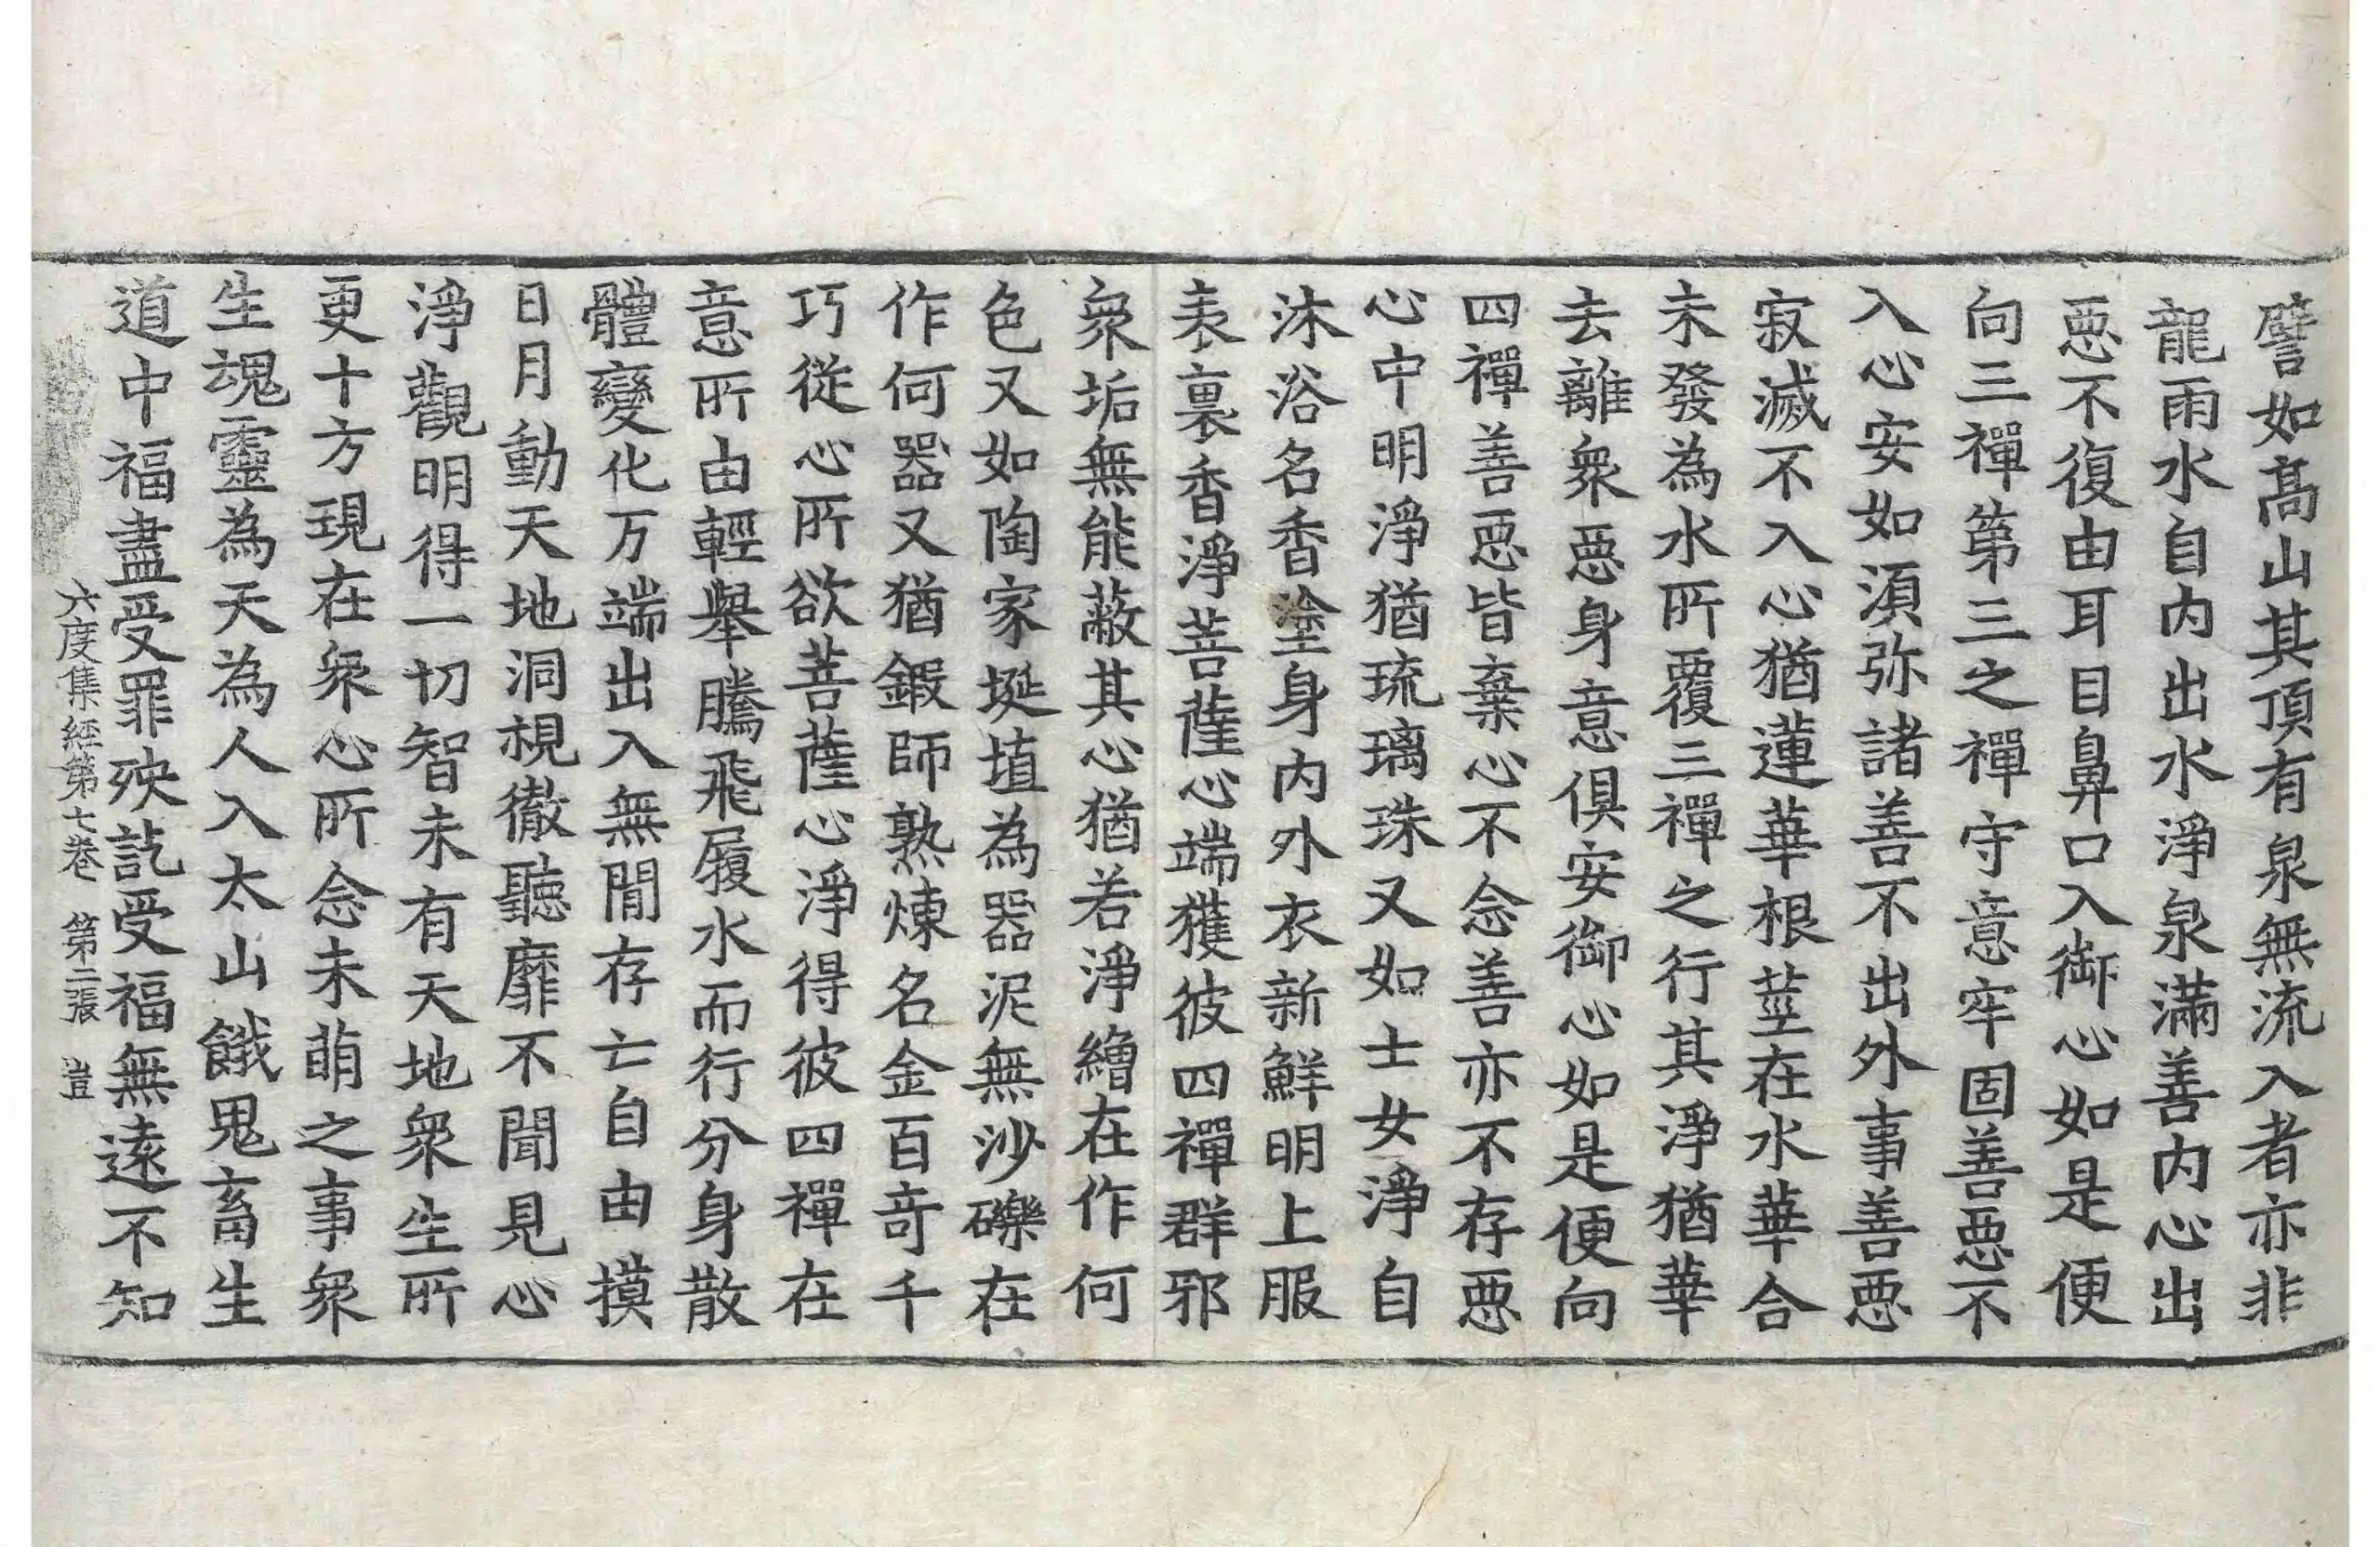 譬如髙山其頂有泉無流入者亦非
龍雨水自内出水淨泉滿善内心出
惡不復由耳目鼻口入御心如是便
向三禪第三之禪守意牢固善惡不
入心安如湏弥諸善不出外事善惡
寂滅不入心猶蓮華根莖在水華合
未發為水所覆三禪之行其淨猶華
去離衆惡身意俱安御心如是便向
四禪善惡皆棄心不念善亦不存惡
心中明淨猶琉璃珠又如士女淨自
沐浴名香塗身内外衣新鮮明上服
表裏香淨菩薩心端獲彼四禪群邪
衆垢無能蔽其心猶若淨繒在作何
色又如陶家埏埴為器泥無沙礫在
作何器又猶鍜師熟煉名金百竒千
巧從心所欲菩薩心淨得彼四禪在
意所由輕舉騰飛履水而行分身散
體變化万端出入無閒存亡自由摸
日月動天地洞視徹聽靡不聞見心
淨觀明得一切智未有天地衆生所
更十方現在衆心所念未萌之事衆
生魂靈為天為人入太山餓鬼畜生
道中福盡受罪殃訖受福無遠不知
六度集經第七卷　第二張　豈